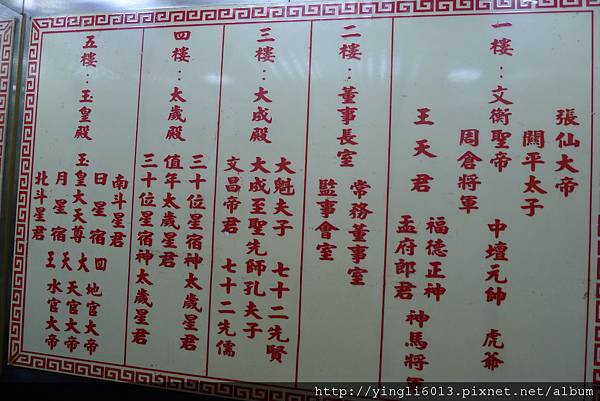 一樓：文衡聖帝 中壇元帥 虎爺
張仙大帝
關平太子
周倉將軍
王天君
福德正神
孟府郎君 神馬將軍
二樓：董事長室
常務董事室
監事會室
三樓：大成殿
大魁夫子 七十二先賢
大成至聖先師孔夫子
文昌帝君 七十二先儒
四樓：太歲殿
三十位星宿神太歲星君
值年太歲星君
三十位星宿神太歲星君
五樓：玉皇殿
玉皇大天尊
南斗星君
日星宿
月星宿
北斗星君
四大天王
地官大帝
天官大帝
水官大帝
http://yingli6013.pixnet.net/album